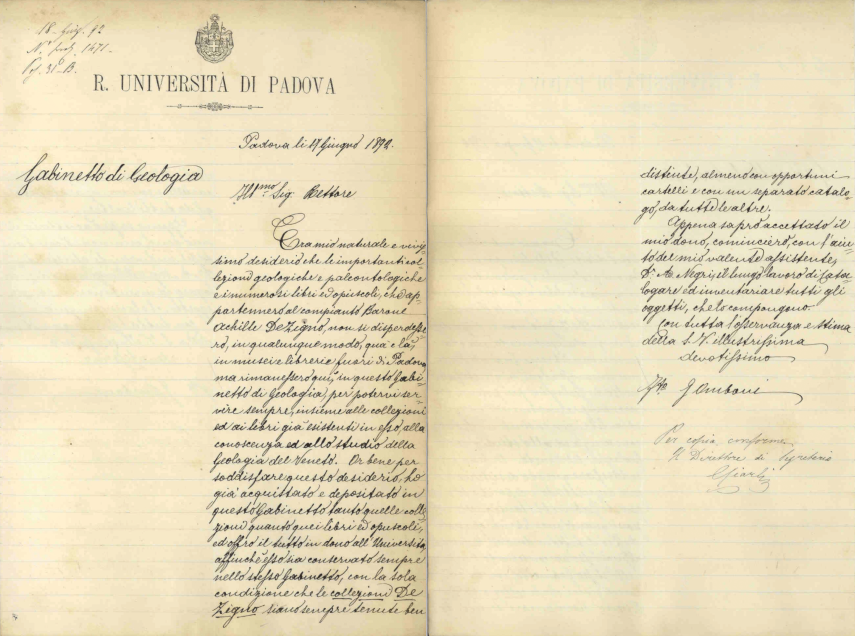 18 giug. 92
N. prot. 1471
Pos. 31 B.
R. UNIVERSITÀ DI PADOVA
Padova li 17 Giugno 1892.
Gabinetto di Geologia
Ill.mo Sig. Rettore
Era mio naturale e vivis-
simo desiderio che le importanti col-
lezioni geologiche e paleontologiche
e i numerosi libri ed opuscoli, che ap-
partennero al compianto Barone
Achille De Zigno, non si disperdesse-
ro, in qualunque modo, qua e là,
in musei e librerie fuori di Padova,
ma rimanessero qui, in questo Gabi-
netto di Geologia, per potervi ser-
vire sempre, insieme alle collezioni
ed ai libri già esistenti in esso, alla
conoscenza ed allo studio della
Geologia del Veneto. Or bene per
soddisfare questo desiderio, ho
già acquistato e depositato in
questo Gabinetto tanto quelle colle-
zioni quanto quei libri ed opuscoli,
ed offro il tutto in dono all'Università
affinchè esso sia conservato sempre
nello stesso Gabinetto, con la sola
condizione che le collezioni De
Zigno siano sempre tenute ben
distinte, almeno con opportuni
cartelli e con un separato catalo-
go, da tutte le altre.
Appena saprò accettato il
mio dono, comincierò, con l'aiu-
to del mio valente assistente,
Dr. A. Negri, il lungo lavoro di Cata-
logare ed inventariare tutti gli
oggetti, che lo compongono.
Con tutta l'osservanza e stima
della S. V. illustrissima
devotissimo
fto G. Omboni
Per copia conforme
Il Direttore di Segreteria